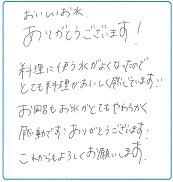 おいしいお水
ありがとうございます!
料理に使う水がよくなったので
とても料理がおいしく感じています!!
お風呂もお水がとてもやわらかく
感動です!ありがとうございます!
これからもよろしくお願いします。